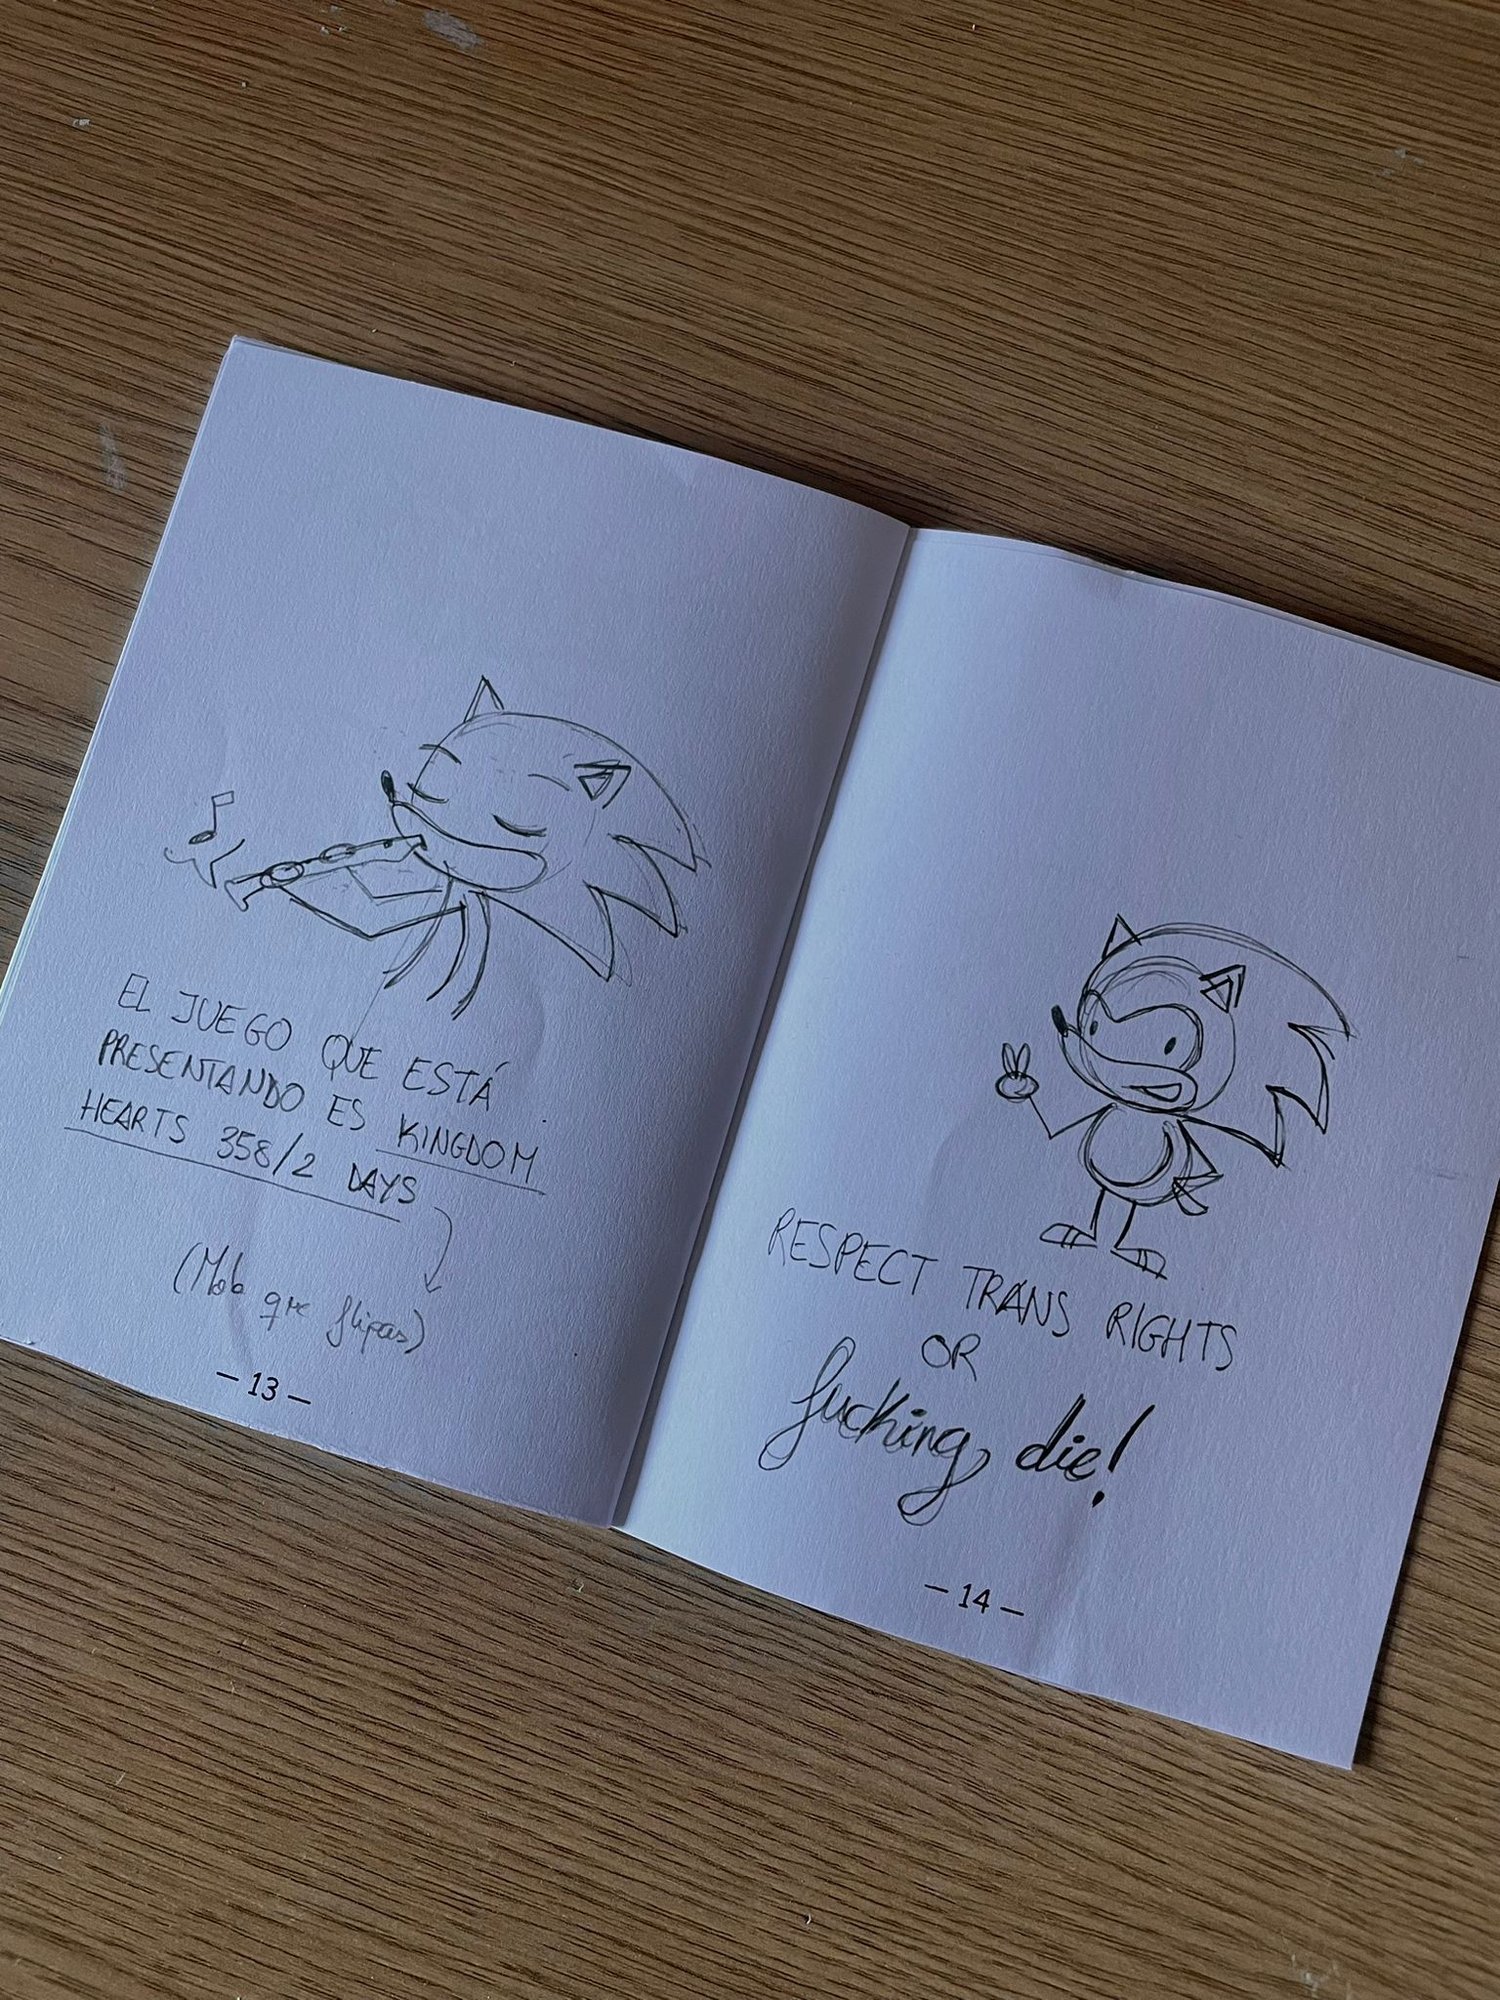 EL JUEGO QUE ESTÁ
PRESENTANDO ES KINGDOM
HEARTS 358/2 DAYS
(Mola que flipas)
— 13 —
RESPECT TRANS RIGHTS
OR
fucking die!
— 14 —